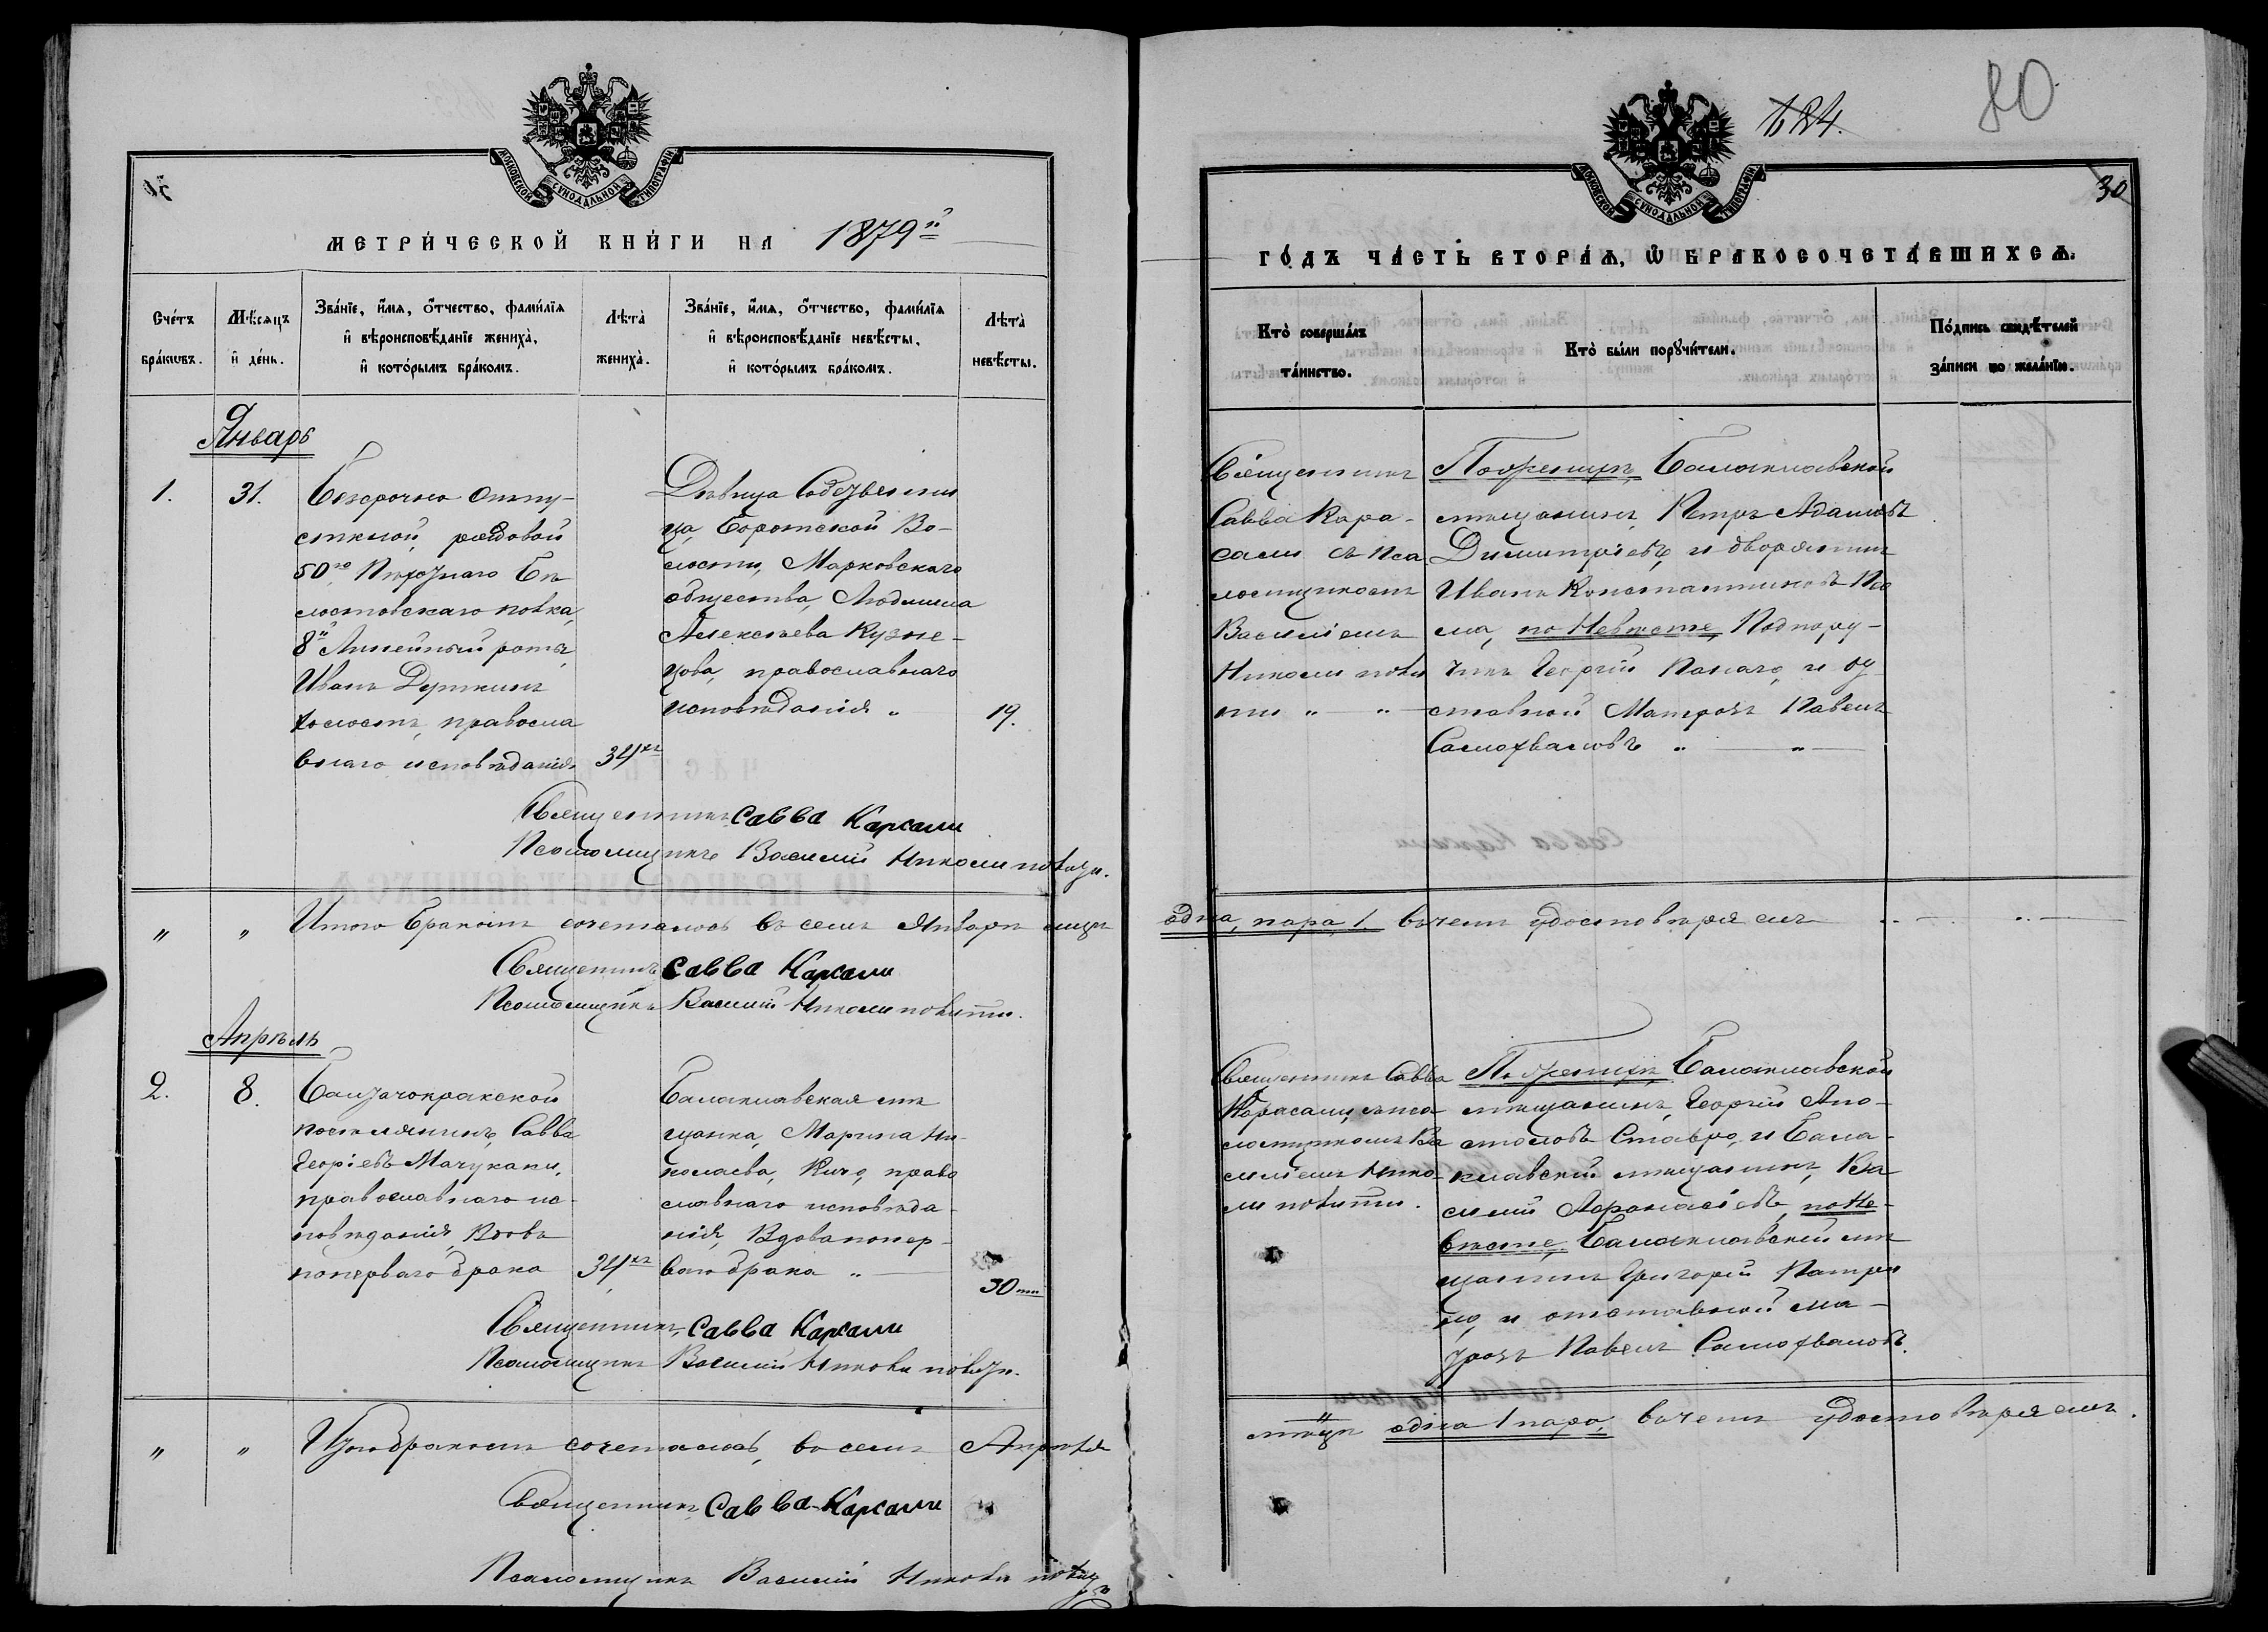 МОСКОВСКОЙ СѴНОДАЛЬНОЙ ТИПОГРАФІИ
МЕТРИ́ЧЕСКОЙ КНИ́ГИ НА 1879й
Сче́тъ бра́кωвъ.
Мѣ́сяцъ и҆ де́нь.
Зва́нїе, и҆́мѧ, ѻ҆́тчество, фами́лїѧ
и҆ вѣроисповѣ́данїе жениха̀,
и҆ кото́рымъ бра́комъ.
Лѣ́та̀ жениха̀.
Зва́нїе, и҆́мѧ, ѻ҆́тчество, фами́лїѧ
и҆ вѣроисповѣ́данїе невѣ́сты,
и҆ кото́рымъ бра́комъ.
Лѣ́та̀ невѣ́сты.
Январь
1.
31.
Безсрочно отпу-
стной, рядовой
50го Пѣхотнаго Бѣ
лостокскаго полка,
8й Линейный роты,
Иванъ
православ
внаго исповѣданія
34хъ
Дѣвица
Волости, Марковскаго
общества, Людмила
Алексѣева Кузне-
цова, православнаго
исповѣданія „
19.
Священникъ Савва Карсали
Псаломщикъ Василий Николи
„ „ Итого бракомъ сочеталось въ семъ Январѣ мцѣ
Священникъ Савва Карсали
Псаломщикъ Василий Николи
Апрѣль
2.
8.
поселянинъ, Савва
Георгіевъ Мачукаки,
православнаго ис-
повѣданія, Вдовъ
поперваго брака
34хъ
Балаклавская мѣ
щанка, Марина Ни-
колаева, Кичо, право
славнаго исповѣда-
нія, Вдова попер-
ваго брака „
30ти
Священникъ Савва Карсали
Псаломщикъ Василий
„ „ Итого бракомъ сочеталось, въ семъ Апрѣля
Священникъ Савва Карсали
Псаломщикъ Василий
184.
80
30
МОСКОВСКОЙ СѴНОДАЛЬНОЙ ТИПОГРАФІИ
ГО́ДЪ ЧА́СТЬ ВТОРА́Ѧ, Ѡ҆ БРАКОСОЧЕТА́ВШИХСѦ.
Кто̀ соверша́лъ
та́инство.
Кто̀ бы́ли порꙋчи́тели.
По́дпись свидѣ́телей
за́писи по жела́нїю.
Священникъ
Савва Кара-
сали съ Пса
ломщикомъ
Василіемъ
По Женихѣ, Балаклавской
мѣщанинъ, Петръ Адамовъ
Димитріевъ, и дворянинъ
Иванъ Константиновъ
по Невѣсте, Подпору-
чикъ Георгій и от
ставной Матрозъ Павелъ
Самохваловъ „ „
одна, пара 1. въ чемъ удостовѣряемъ
Священникъ Савва
Карасали, съ пса
ломщикомъ Ва
силіемъ Нико-
По Женихѣ Балаклавской
мѣщанинъ, Георгій Апо-
столовъ Ставро, и Бала-
клавскій мѣщанинъ, Ва
силій Афанасіевъ, по Не-
вѣсте, Балаклавскій мѣ
щанинъ Григорій
и отставной ма-
трозъ Павелъ Самохваловъ.
мѣцѣ одна 1 пара, въ чемъ удостовѣряемъ.